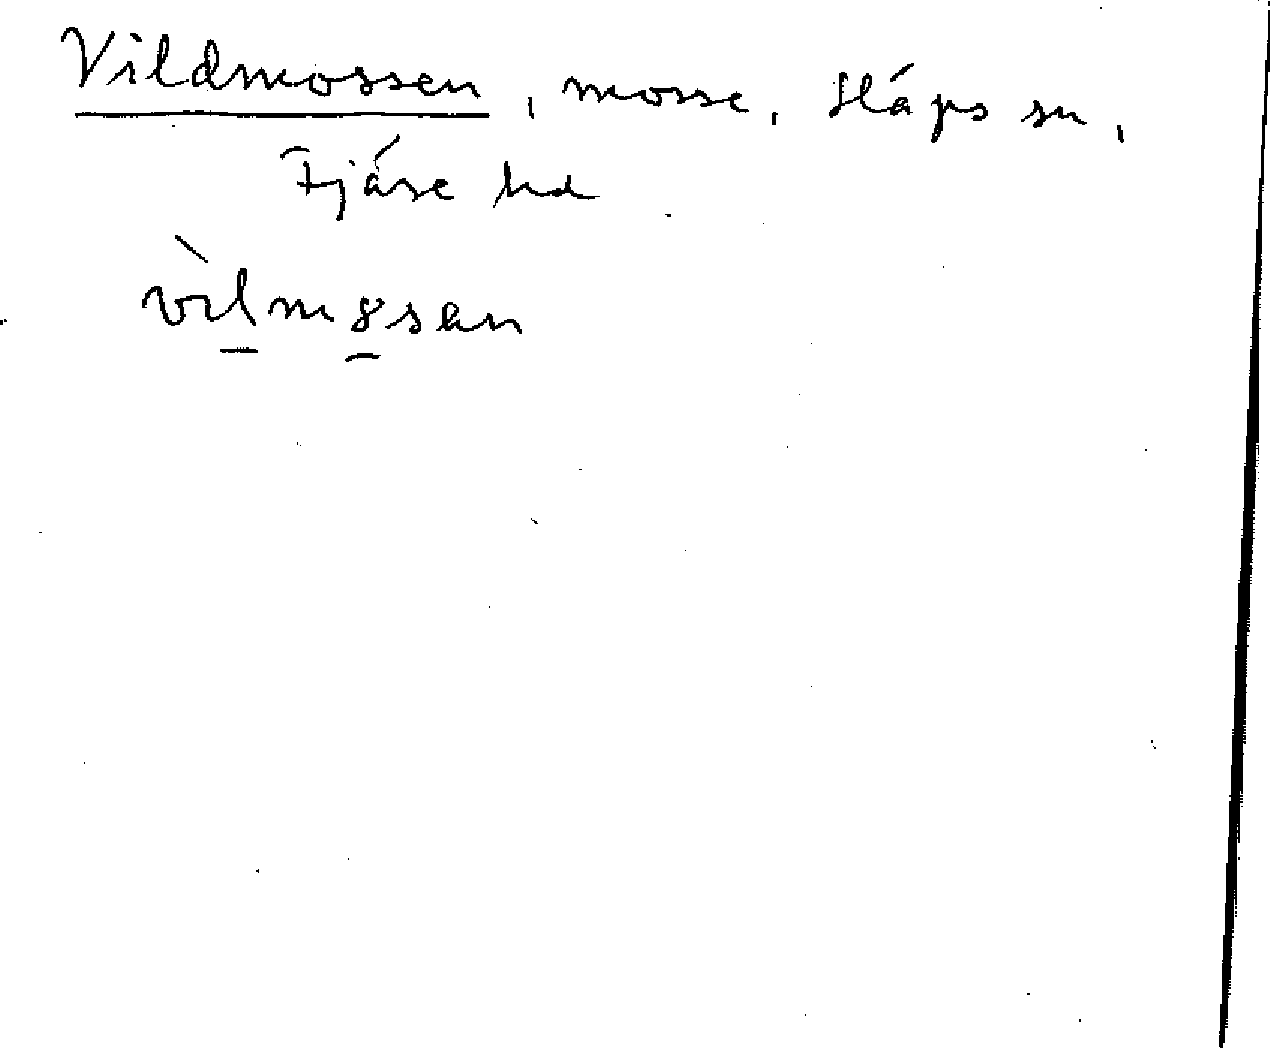 Vildmossen, mosse, Släps sn,
Fjäre hd
vìlmɞsan